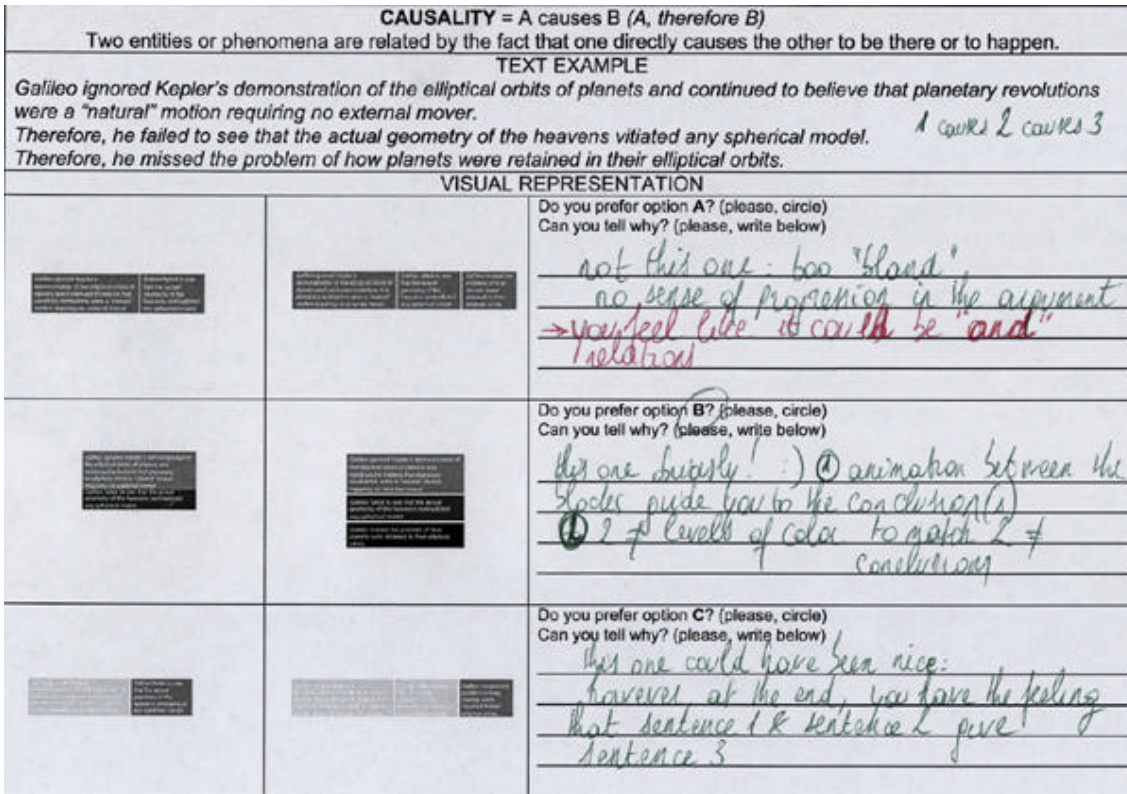 CAUSALITY = A causes B (A, therefore B)
Two entities or phenomena are related by the fact that one directly causes the other to be there or to happen.
TEXT EXAMPLE
Galileo ignored Kepler's demonstration of the elliptical orbits of planets and continued to believe that planetary revolutions
were a "natural" motion requiring no external mover.
Therefore, he failed to see that the actual geometry of the heavens vitiated any spherical model.
1 causes 2 causes 3
Therefore, he missed the problem of how planets were retained in their elliptical orbits.
VISUAL REPRESENTATION
Do you prefer option A? (please, circle)
Can you tell why? (please, write below)
not this one: too "bland",
no sense of progression in the argument
→ you feel like it could be "and"
relations
Do you prefer option B? (please, circle)
Can you tell why? (please, write below)
this one :) ① animation between the
blocks guide you to the conclusion(s)
② 2 ≠ levels of color to match 2 ≠
conclusions
Do you prefer option C? (please, circle)
Can you tell why? (please, write below)
this one could have been nice:
however, at the end, you have the feeling
that sentence 1 & sentence 2 give
sentence 3